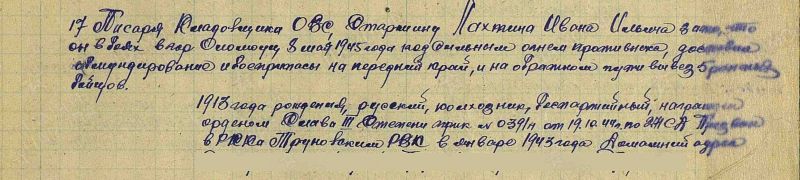 17 Писаря Кладовщика ОВС, Старшину Лахтина Ивана Ильича за то, что
он в боях в гор Оломоуц 8 мая 1945 года под сильным огнем противника, доставил
обмундирование и боеприпасы на передний край, и на обратном пути вывез 5 раненых
бойцов.
1913 года рождения, русский, колхозник, беспартийный, награжден
орденом Слава III Степени №0391/н от 19.10.44г. по СД Призван
в РККа Труновским РВК в январе 1943 года Домашний адрес